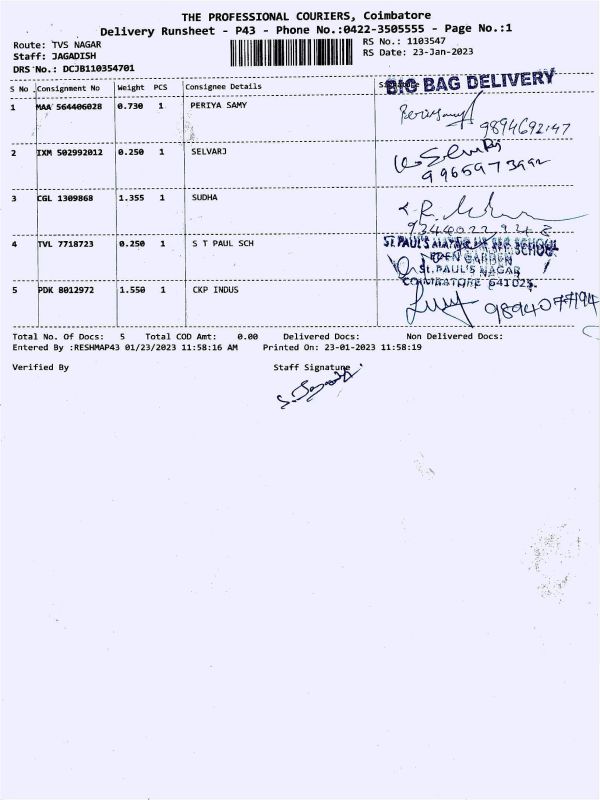 THE PROFESSIONAL COURIERS, Coimbatore
Delivery Runsheet - P43 - Phone No.:0422-3505555 - Page No.:1
Route: TVS NAGAR RS No.: 1103547
Staff: JAGADISH RS Date: 23-Jan-2023
DRS No.: DCJB110354701
S No Consignment No Weight PCS Consignee Details Signature
BIG BAG DELIVERY
1 MAA 564406028 0.730 1 PERIYA SAMY
Periyasamy
9894692147
2 IXM 502992012 0.250 1 SELVARJ
9965973992
3 CGL 1309868 1.355 1 SUDHA
9344022948
4 TVL 7718723 0.250 1 S T PAUL SCH
ST. PAUL'S HR SEC SCHOOL
EDEN GARDEN
ST. PAUL'S NAGAR
COIMBATORE 641025.
5 PDK 8012972 1.550 1 CKP INDUS
9894077194
Total No. Of Docs: 5 Total COD Amt: 0.00 Delivered Docs: Non Delivered Docs:
Entered By :RESHMAP43 01/23/2023 11:58:16 AM Printed On: 23-01-2023 11:58:19
Verified By Staff Signature